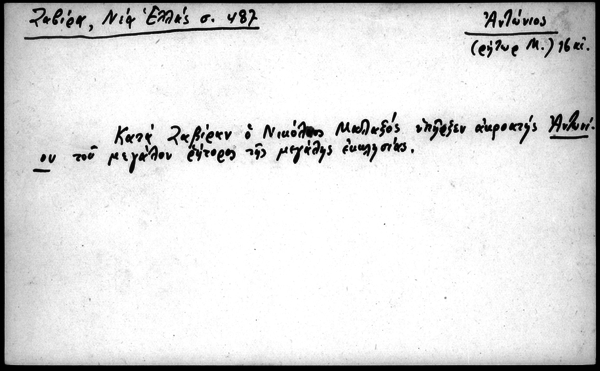 Ζαβίρα, Νέα Ἑλλάς σ. 487
Ἀντώνιος
(ρήτωρ Μ.) 16 αἰ.
Κατά Ζαβίραν ὁ Νικόλαος Μαλαξός ὑπῆρξεν ἀκροατής Ἀντωνί-
ου τοῦ μεγάλου ῥήτορος τῆς μεγάλης ἐκκλησίας.